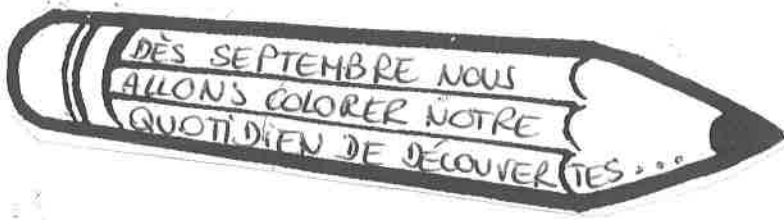 DÈS SEPTEMBRE NOUS
ALLONS COLORER NOTRE
QUOTIDIEN DE DÉCOUVERTES...